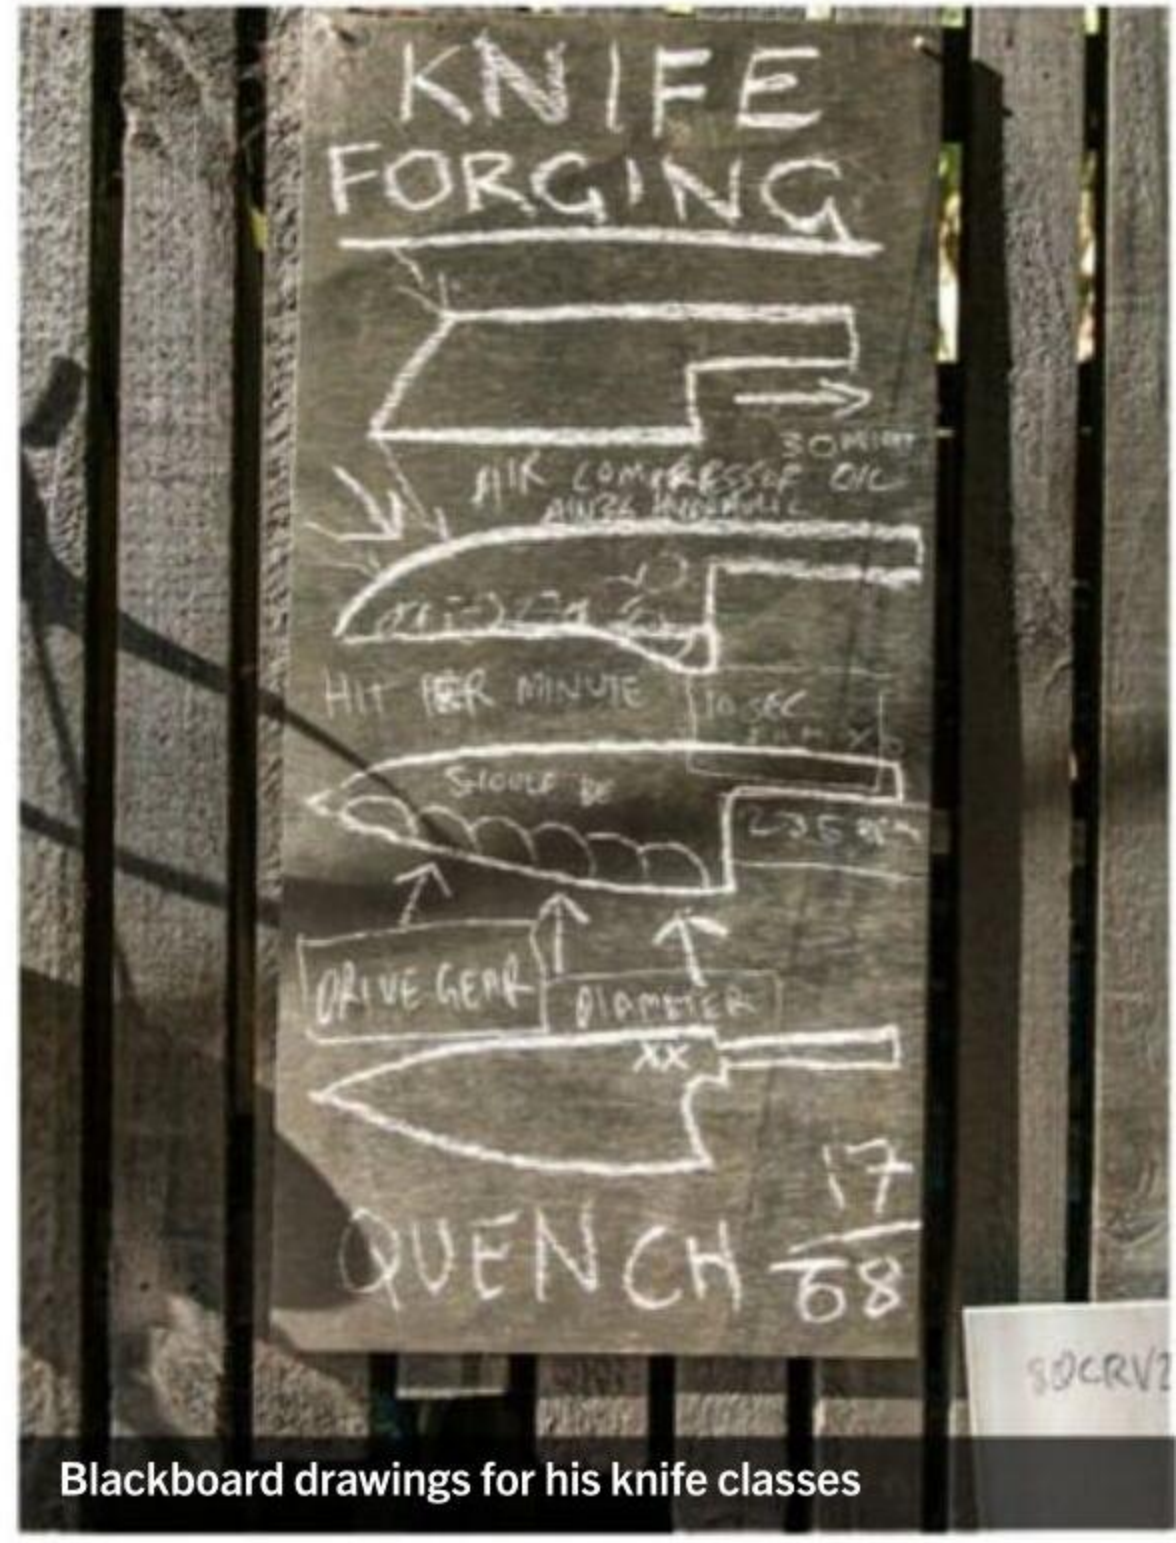 KNIFE
FORGING
AIR COMPRESSOR OIL
HIT PER MINUTE
10 SEC
DRIVE GEAR
DIAMETER
XX
17
68
QUENCH
80CRV2
Blackboard drawings for his knife classes